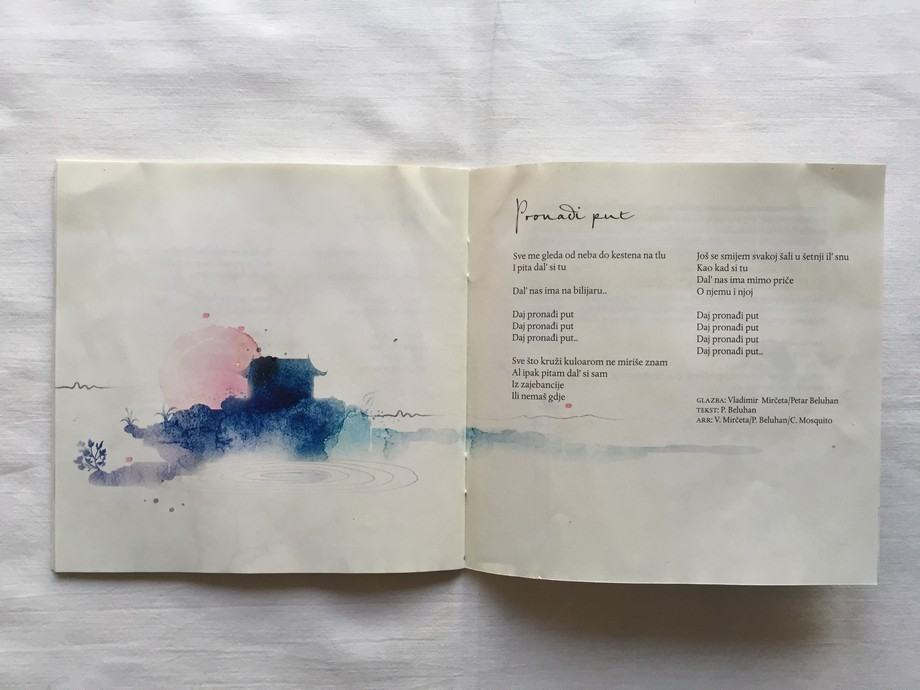 Pronađi put
Sve me gleda od neba do kestena na tlu
I pita dal' si tu
Dal' nas ima na bilijaru..
Daj pronađi put
Daj pronađi put
Daj pronađi put..
Sve što kruži kuloarom ne miriše znam
Al ipak pitam dal' si sam
Iz zajebancije
Ili nemaš gdje
Još se smijem svakoj šali u šetnji il' snu
Kao kad si tu
Dal' nas ima mimo priče
O njemu i njoj
Daj pronađi put
Daj pronađi put
Daj pronađi put
Daj pronađi put..
GLAZBA: Vladimir Mirčeta/Petar Beluhan
TEKST: P. Beluhan
ARR: V. Mirčeta/P. Beluhan/C. Mosquito